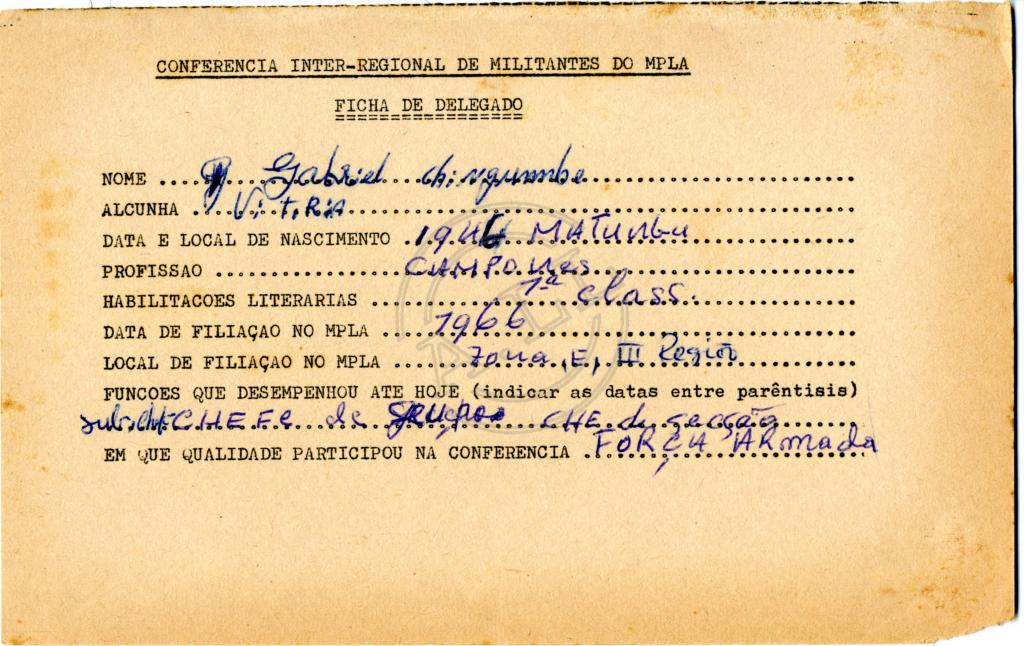 CONFERENCIA INTER-REGIONAL DE MILITANTES DO MPLA
FICHA DE DELEGADO
NOME .... Gabriel chingumbe
ALCUNHA .. Vi TRiA
DATA E LOCAL DE NASCIMENTO . 1946 MATumbu
PROFISSAO ... CAMPONes
HABILITACOES LITERARIAS ... 1ª class.
DATA DE FILIAÇAO NO MPLA .... 1966
LOCAL DE FILIAÇAO NO MPLA .... Zona, E, III Região
FUNCOES QUE DESEMPENHOU ATE HOJE (indicar as datas entre parêntisis)
CHEFE de grupo CHE de secção
EM QUE QUALIDADE PARTICIPOU NA CONFERENCIA . FORÇA ARmada